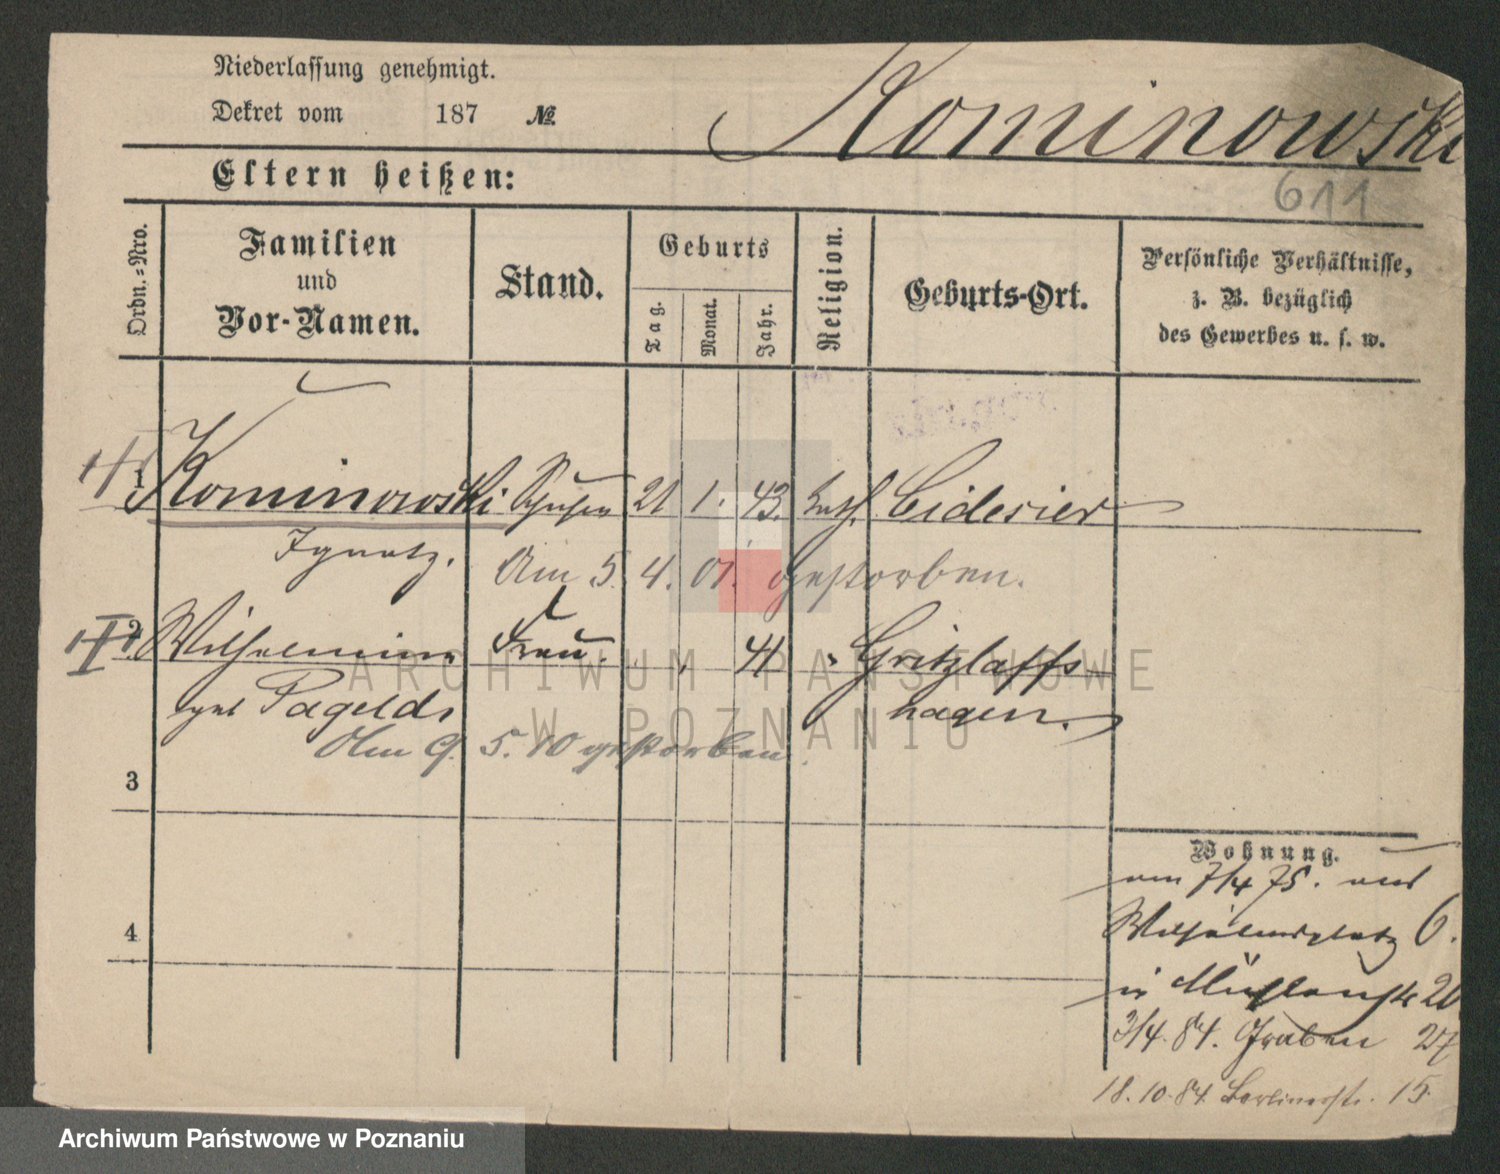 Niederlassung genehmigt.
Dekret vom 187 №
Kominowski
611
Eltern heißen:
Ordn.-Nro.
Familien
und
Vor-Namen.
Stand.
Geburts
Tag.
Monat.
Jahr.
Religion.
Geburts-Ort.
Persönliche Verhältnisse,
z. B. bezüglich
des Gewerbes u. s. w.
1 Kominowski 21 1. 43. kath.
Ignatz.
Am 5. 4. 01. gestorben.
2 Wilhelmine Frau. 41 Gritzlaffs
geb Pagelds hagen.
Am 9. 5. 10 gestorben.
3
4
Wohnung.
am 7/4 75. aus
Wilhelmsplatz 6.
in Mühlenstr
3/4. 84. Graben 27
18. 10. 84. Berlinerstr. 15
ARCHIWUM PAŃSTWOWE
W POZNANIU
Archiwum Państwowe w Poznaniu